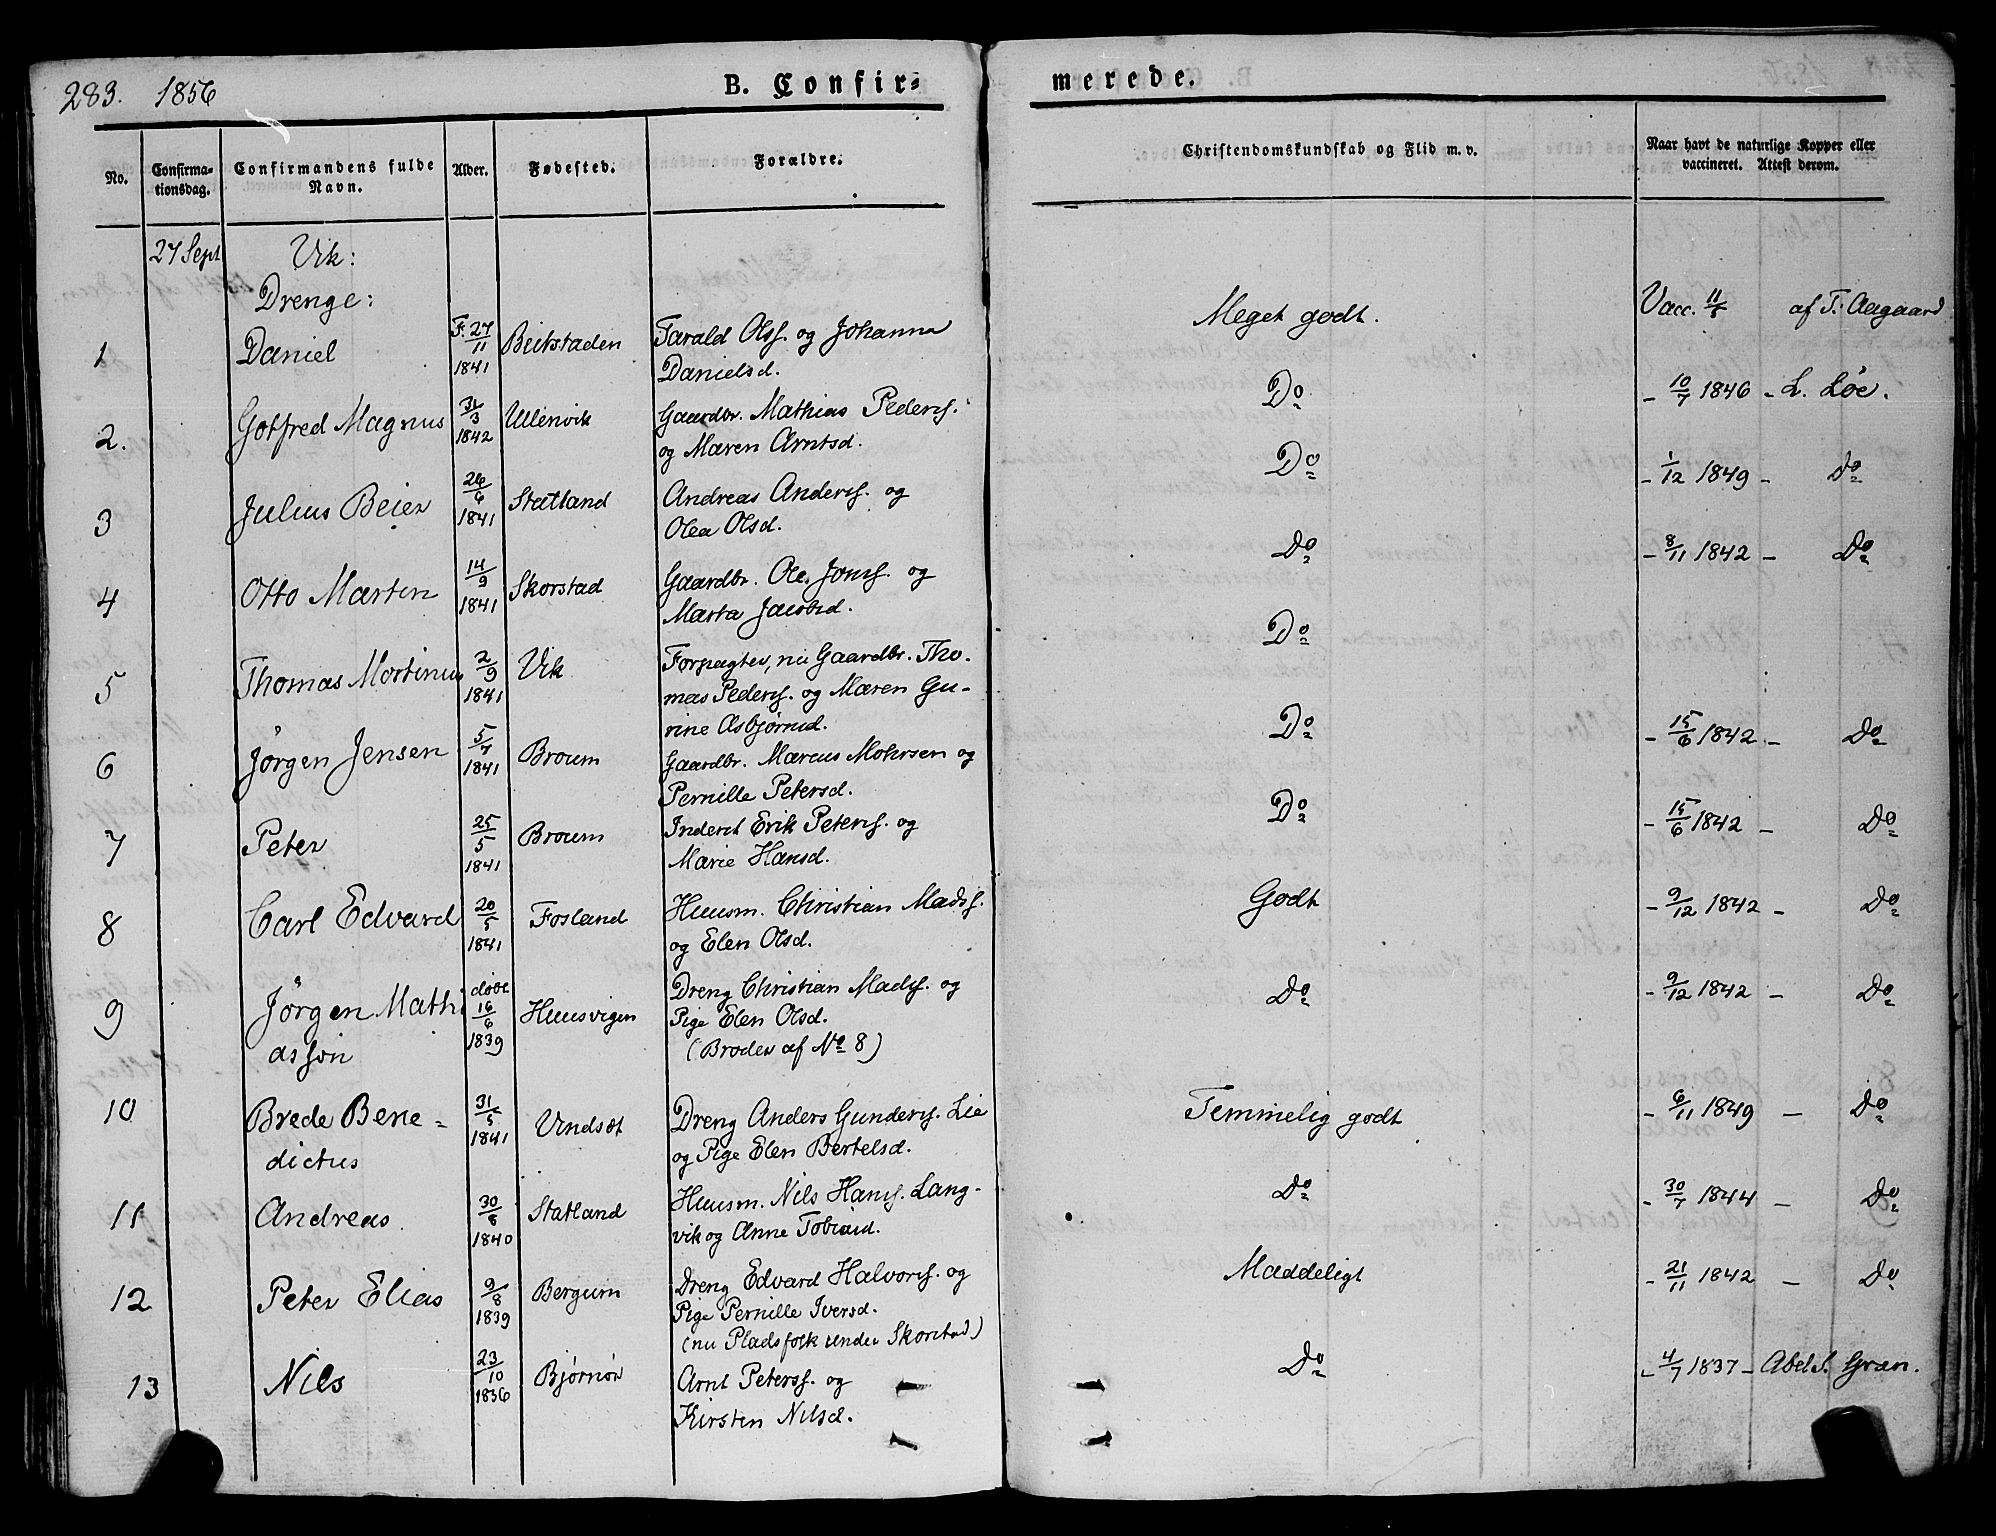 283. 1856 B. Confir= merede.
No. Confirma-tionsdag. Confirmandens fulde Navn. Alder. Fødested. Forældre. Christendomskundskab og Flid m. v. Naar havt de naturlige Kopper eller vaccineret. Attest derom.
27 Sept Vik:
Drenge:
1 Daniel F. 27/11 1841 Beitstaden Tarald Olss. og Johanna Meget godt. Vacc. 11/8 af T. Aagaard
Danielsd.
2. Gotfred Magnus 31/3 1842 Ullenvik Gaardbr. Mathias Peders. Do - 10/7 1846 - L. Løe.
og Maren Arntsd.
3 Julius Beier 26/6 1841 Statland Andreas Anders. og Do - 1/12 1849 - Do
Olea Olsd.
4 Otto Martin 14/9 1841 Skorstad Gaardbr. Ole Jons. og Do - 8/11 1842 - Do
Marta Jacobsd.
5 Thomas Mortinus 2/9 1841 Vik Forpagter, nu Gaardbr. Tho- Do
mas Peders. og Maren Gu-
rine Asbjørnsd.
6 Jørgen Jensen 5/7 1841 Broum Gaardbr. Marcus Mohrsen og Do - 15/6 1842 - Do
Pernille Petersd.
7 Peter 25/5 1841 Broum Inderst Erik Peters. og Do - 15/6 1842 - Do
Marie Hansd.
8 Carl Edvard 20/5 1841 Fosland Huusm. Christian Mads. Godt - 9/12 1842 - Do
og Elen Olsd.
9 Jørgen Mathi døbt 16/6 1839 Huusvigen Dreng Christian Mads. og Do - 9/12 1842 - Do
assøn Pige Elen Olsd.
(Broder af No 8)
10 Brede Bene= 31/5 1841 Vindsøt Dreng Anders Gunders. Lie Temmelig godt - 6/11 1849 - Do
dictus og Pige Elen Bertelsd.
11 Andreas. 30/8 1840 Statland Huusm. Nils Hans. Lang- Do - 30/7 1844 - Do
vik og Anne Tobiasd.
12 Peter Elias 9/8 1839 Bergum Dreng Edvard Halvors. og Maadeligt - 21/11 1842 - Do
Pige Pernille Iversd.
(nu Pladsfolk under Skorstad)
13 Nils 23/10 1836 Bjørnør Arnt Peterss. og Do - 4/7 1837 - Abel S. Gran.
Kirsten Nilsd.